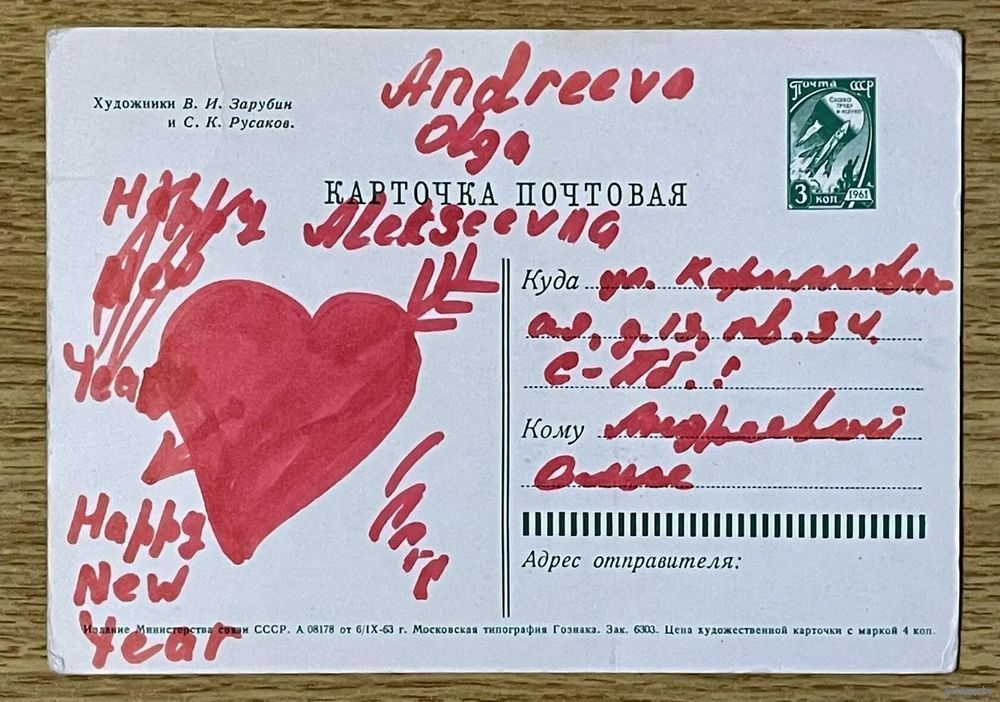 Художники В. И. Зарубин
и С. К. Русаков.
Andreeva
Olga
Alekseevna
КАРТОЧКА ПОЧТОВАЯ
Почта СССР
СЛАВА
ТРУДУ
И НАУКЕ
3 КОП
1961
Happy
New
Year
Куда ул. Кирилловск-
ая, д.13, кв.34.
С-Пб.!
Кому Андреевой
Ольге
Адрес отправителя:
Happy
New
Year
Издание Министерства связи СССР. А 08178 от 6/IX-63 г. Московская типография Гознака. Зак. 6303. Цена художественной карточки с маркой 4 коп.